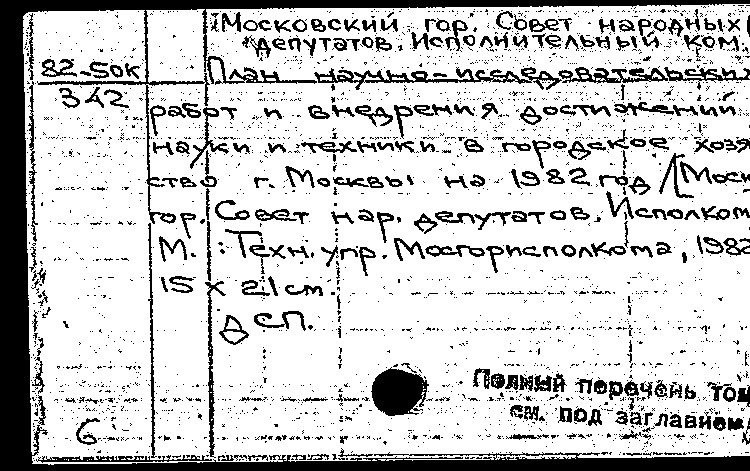 Московский гор. Совет народных
депутатов. Исполнительный ком.
82-50к План научно-исследовательских
342 работ и внедрения достижений
науки и техники в городское хозя
ство г. Москвы на 1982 год /[Моск
гор. Совет нар. депутатов, Исполком
М. : Техн. упр. Мосгорисполкома, 1982
15 x 21 см.
ДСП.
Полный перечень том
см. под заглавием
6